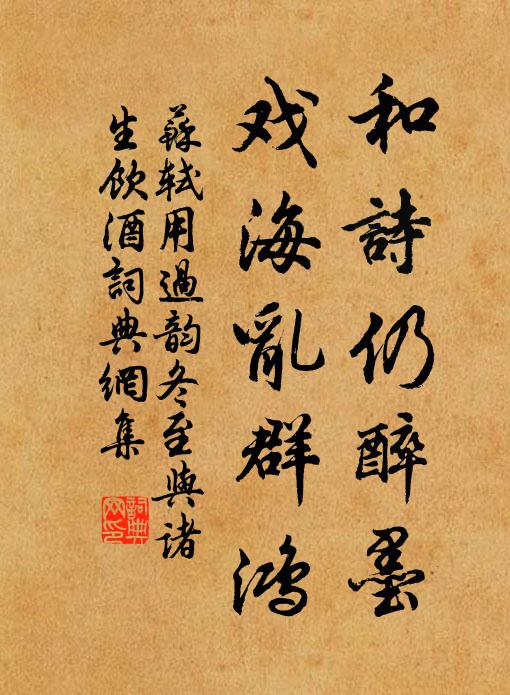 和詩仍醉墨
戏海亂群鴻
蘇軾用過韵冬至與諸
生飲酒詞典網集
詞典
网印